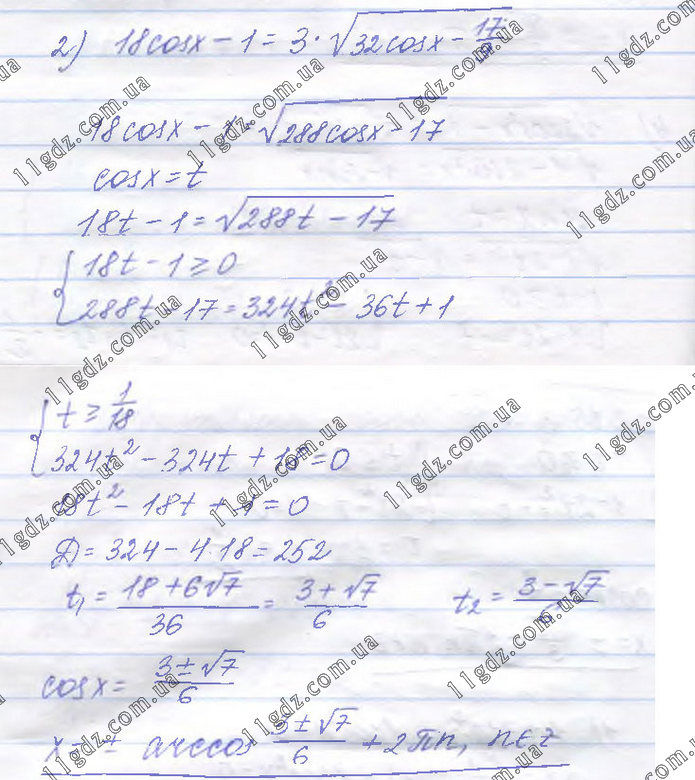 2) 18cosx - 1 = 3·√(32cosx - 17/9)
18cosx - 1 = √(288cosx - 17)
cosx = t
18t - 1 = √(288t - 17)
{ 18t - 1 ≥ 0
288t - 17 = 324t² - 36t + 1
{ t ≥ 1/18
324t² - 324t + 18 = 0
18t² - 18t + 1 = 0
D = 324 - 4·18 = 252
t₁ = (18 + 6√7)/36 = (3 + √7)/6 t₂ = (3 - √7)/6
cosx = (3 ± √7)/6
x = ± arccos (3 ± √7)/6 + 2πn, n∈z
11gdz.com.ua